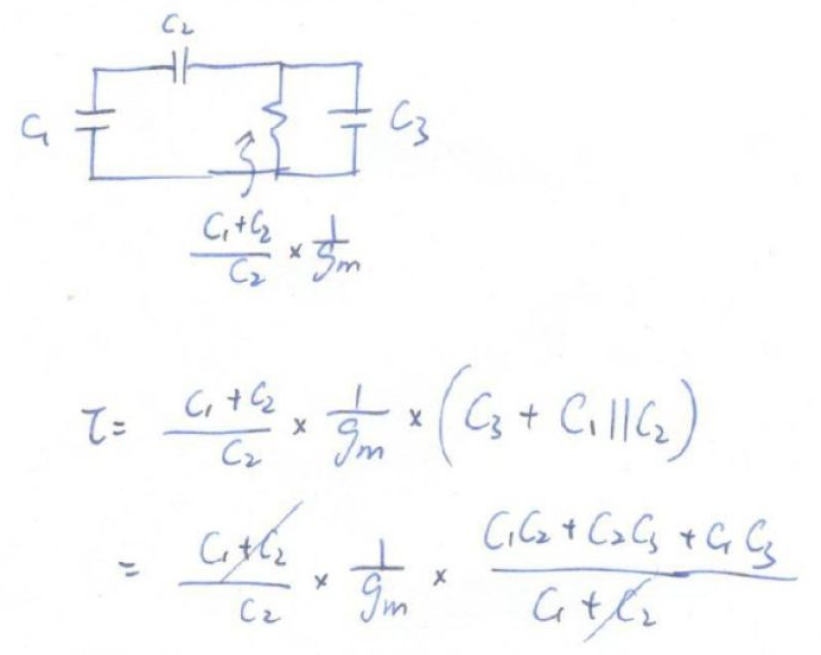 C₂
C₁ C₃
(C₁+C₂)/C₂ × 1/gm
τ= (C₁+C₂)/C₂ × 1/gm × (C₃ + C₁||C₂)
= (C₁+C₂)/C₂ × 1/gm × (C₁C₂+C₂C₃+C₁C₃)/(C₁+C₂)